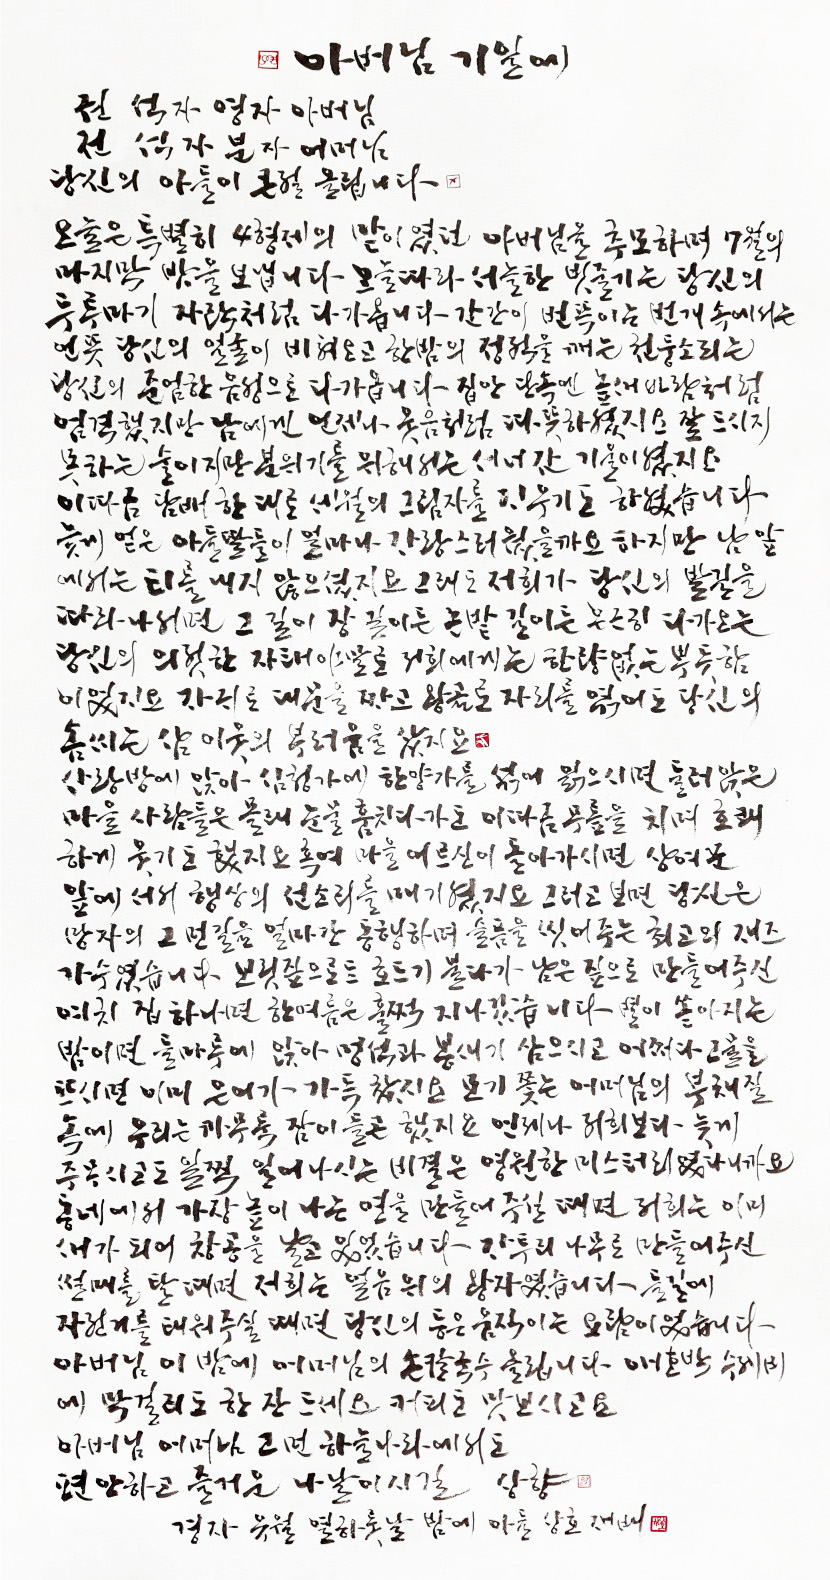 아버님 기일에
전 석자 영자 아버님
전 석자 분자 어머님
당신의 아들이 큰절 올립니다
오늘은 특별히 4형제의 맏이였던 아버님을 추모하며 7월의
마지막 밤을 보냅니다 오늘따라 서늘한 빗줄기는 당신의
두루마기 자락처럼 다가옵니다 간간이 번뜩이는 번개 속에서는
언뜻 당신의 얼굴이 비쳐오고 한밤의 정적을 깨는 천둥소리는
당신의 준엄한 음성으로 다가옵니다 집안 단속엔 높새바람처럼
엄격했지만 남에게 언제나 웃음처럼 따뜻하였지요 잘 드시지
못하는 술이지만 분위기를 위해서는 서너 잔 기울이셨지요
이따금 담배 한 대로 세월의 그림자를 피우기도 하였습니다
늦게 얻은 아들딸들이 얼마나 자랑스러웠을까요 하지만 남 앞
에서는 티를 내지 않으셨지요 그래도 저희가 당신의 발길을
따라 나서면 그 길이 장 길이든 논밭 길이든 은근히 다가오는
당신의 의젓한 자태야말로 저희에게는 한량없는 뿌듯함
이였지요 자귀로 대문을 짜고 왕골로 자리를 엮어도 당신의
솜씨는 삼 이웃의 부러움을 샀지요
사랑방에 앉아 심청가에 한양가를 섞어 읽으시면 둘러앉은
마을 사람들은 몰래 눈물 훔치다가도 이따금 무릎을 치며 호쾌
하게 웃기도 했지요 혹여 마을 어르신이 돌아가시면 상여꾼
앞에 서서 행상의 선소리를 매기셨지요 그러고 보면 당신은
망자의 그 먼길을 얼마간 동행하며 슬픔을 씻어주는 최고의 재즈
가수였습니다 보릿짚으로든 호드기 불다가 남은 짚으로 만들어주신
여치 집 하나면 한여름은 훌쩍 지나갔습니다 별이 쏟아지는
밤이면 들마루에 앉아 멍석과 봉새기 삼으시고 어쩌다 그물을
뜨시면 이미 은어가 가득 찼지요 모기 쫓는 어머님의 부채질
속에 우리는 까무룩 잠이 들곤 했지요 언제나 저희보다 늦게
주무시고도 일찍 일어나시는 비결은 영원한 미스터리였다니까요
동네에서 가장 높이 나는 연을 만들어 주실 때면 저희는 이미
새가 되어 창공을 날고 있었습니다 자투리 나무로 만들어주신
썰매를 탈 때면 저희는 얼음 위의 왕자였습니다 들길에
자전거를 태워주실 때면 당신의 등은 움직이는 요람이었습니다
아버님 이 밤에 어머님의 손칼국수 올립니다 애호박 수제비
에 막걸리도 한 잔 드세요 커피도 맛보시고요
아버님 어머님 그 먼 하늘나라에서도
편안하고 즐거운 나날이시길 상향
경자 유월 열하룻날 밤에 아들 상호 재배